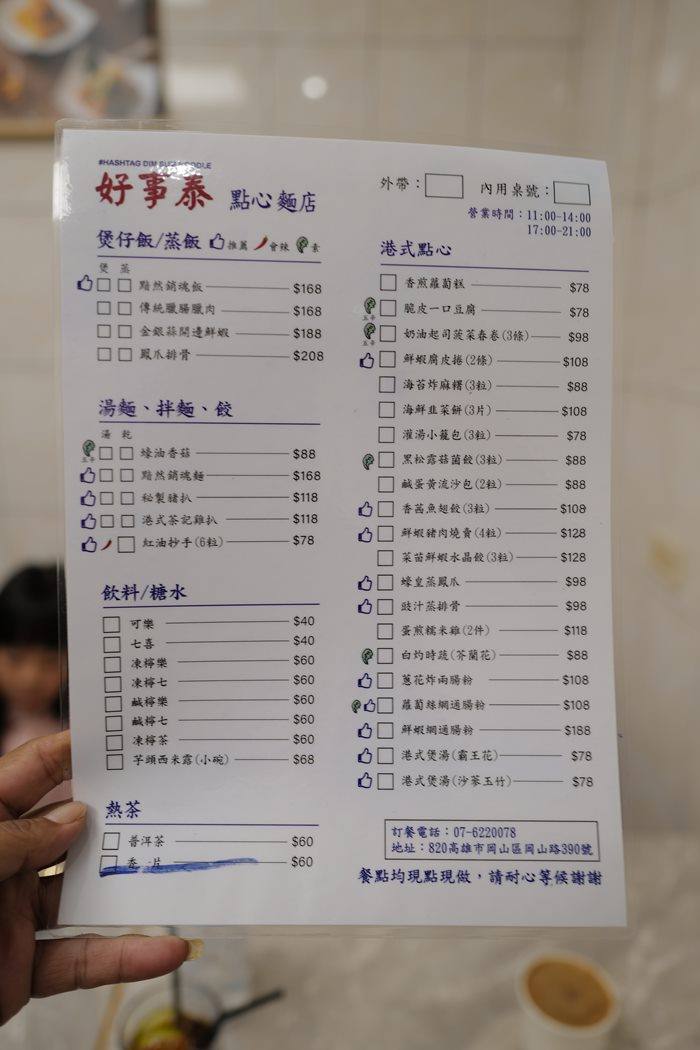 #HASHTAG DIM SUM NOODLE
好事泰 點心麵店
外帶： 內用桌號：
營業時間：11:00-14:00
17:00-21:00
煲仔飯/蒸飯 推薦 會辣 素
煲 蒸
黯然銷魂飯 $168
傳統臘腸臘肉 $168
金銀蒜開邊鮮蝦 $188
鳳爪排骨 $208
湯麵、拌麵、餃
湯 乾
五辛 蠔油香菇 $88
黯然銷魂麵 $168
秘製豬扒 $118
港式茶記雞扒 $118
紅油抄手(6粒) $78
飲料/糖水
可樂 $40
七喜 $40
凍檸樂 $60
凍檸七 $60
鹹檸樂 $60
鹹檸七 $60
凍檸茶 $60
芋頭西米露(小碗) $68
熱茶
普洱茶 $60
香 片 $60
港式點心
香煎蘿蔔糕 $78
五辛 脆皮一口豆腐 $78
五辛 奶油起司菠菜春卷(3條) $98
鮮蝦腐皮捲(2條) $108
海苔炸麻糬(3粒) $88
海鮮韭菜餅(3片) $108
灌湯小籠包(3粒) $78
黑松露菇菌餃(3粒) $88
鹹蛋黃流沙包(2粒) $88
香茜魚翅餃(3粒) $108
鮮蝦豬肉燒賣(4粒) $128
菜苗鮮蝦水晶餃(3粒) $128
蠔皇蒸鳳爪 $98
豉汁蒸排骨 $98
蛋煎糯米雞(2件) $118
白灼時蔬(芥蘭花) $88
蔥花炸兩腸粉 $108
蘿蔔絲網通腸粉 $108
鮮蝦網通腸粉 $188
港式煲湯(霸王花) $78
港式煲湯(沙蔘玉竹) $78
訂餐電話：07-6220078
地址：820高雄市岡山區岡山路390號
餐點均現點現做，請耐心等候謝謝